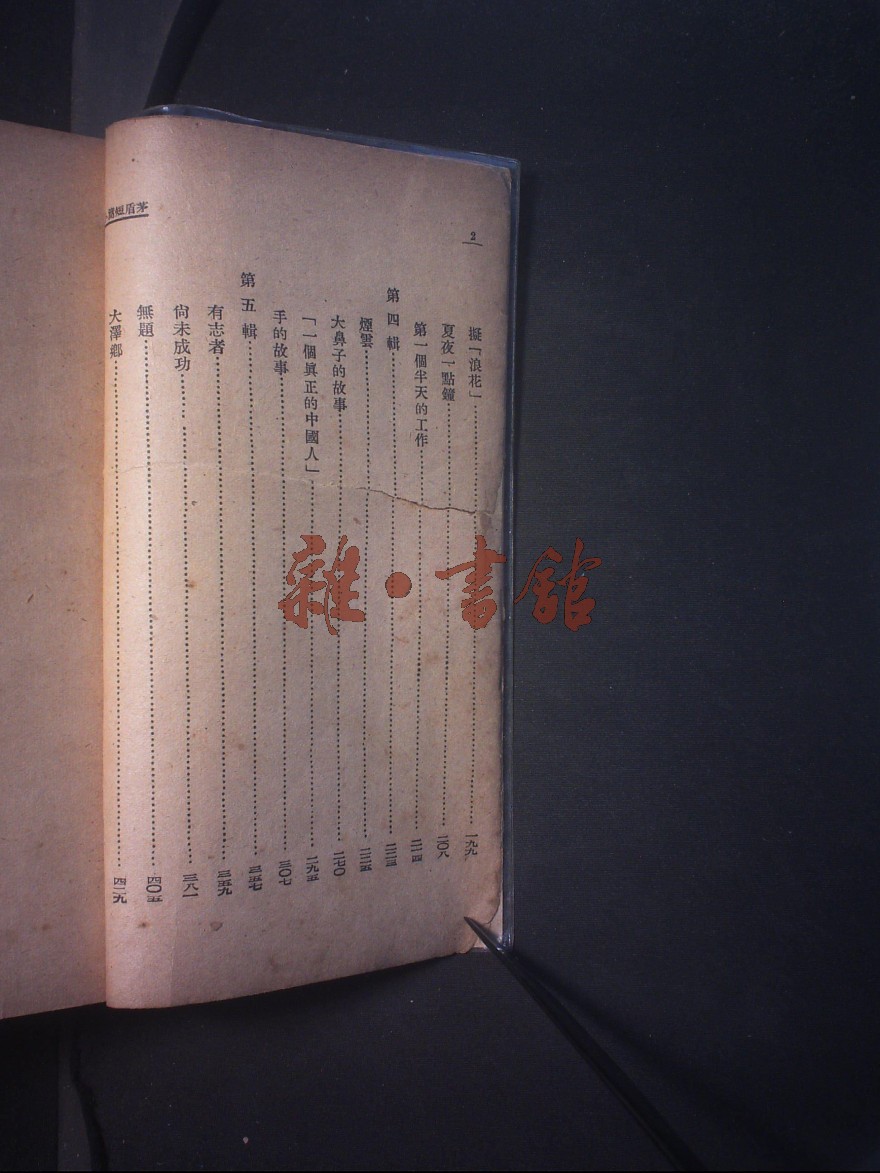 2
擬「浪花」……一九九
夏夜一點鐘……二〇八
第一個半天的工作……二一四
第四輯……二二三
煙雲……二二五
大鼻子的故事……二七〇
「一個眞正的中國人」……二九五
手的故事……三〇七
第五輯……三五七
有志者……三五九
尙未成功……三八一
無題……四〇五
大澤鄉……四二九
茅盾短篇
雜·書館